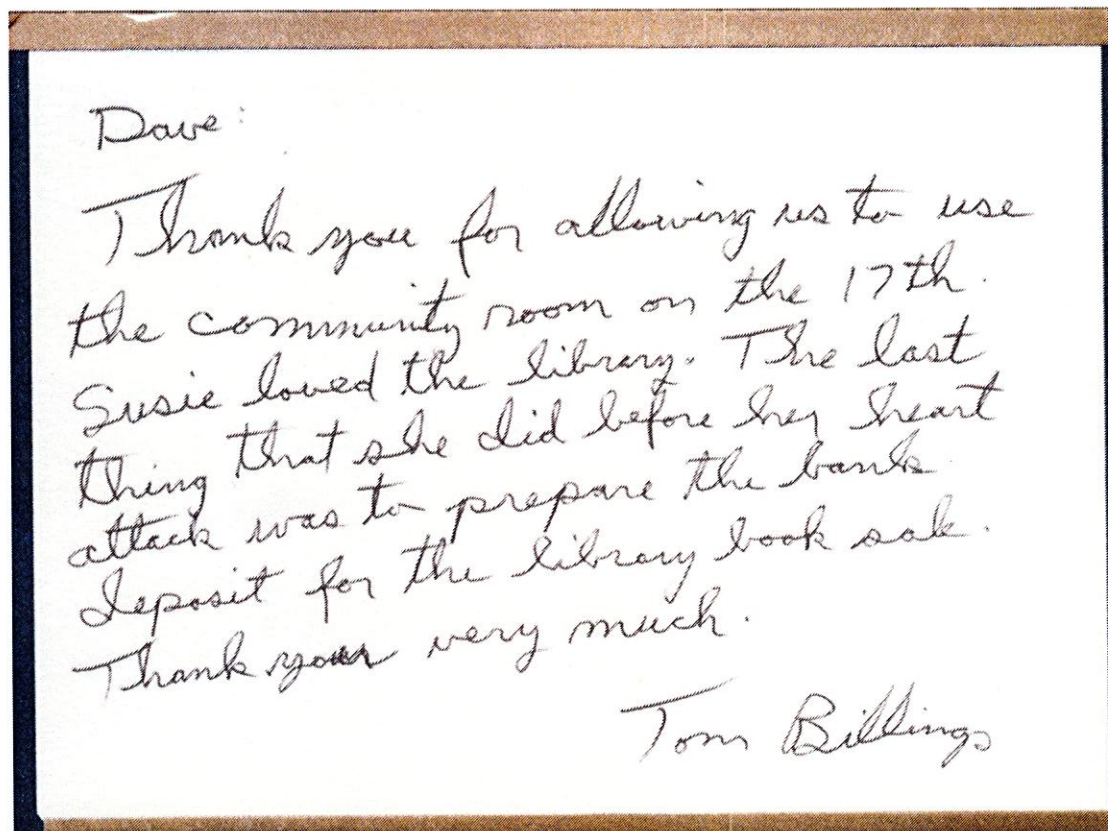 Dave:
Thank you for allowing us to use
the community room on the 17th.
Susie loved the library. The last
thing that she did before her heart
attack was to prepare the bank
deposit for the library book sale.
Thank you very much.
Tom Billings